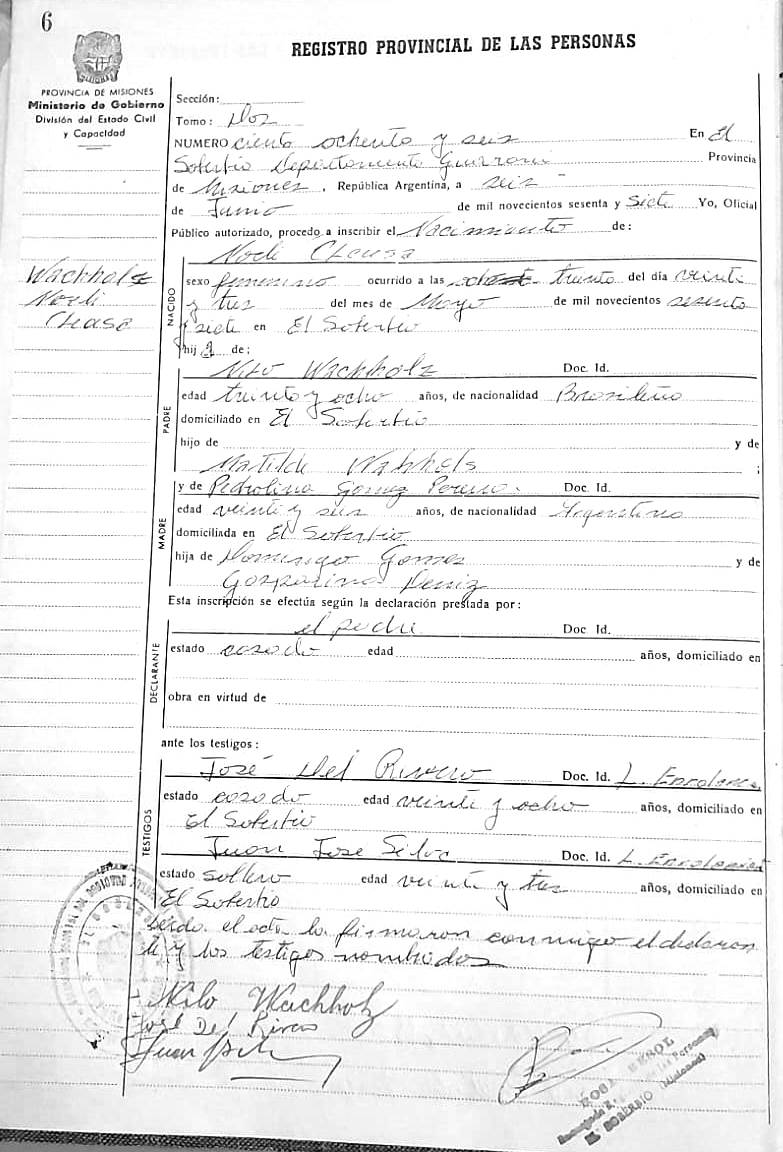 6
REGISTRO PROVINCIAL DE LAS PERSONAS
PROVINCIA DE MISIONES
Ministerio de Gobierno
División del Estado Civil
y Capacidad
Sección:
Tomo: Dos
NUMERO ciento ochenta y seis En El
Soberbio Departamento Guarani Provincia
de Misiones, República Argentina, a seis
de Junio de mil novecientos sesenta y Siete Yo, Oficial
Público autorizado, procedo a inscribir el Nacimiento de:
Noeli
Wachholz
Noeli
NACIDO
sexo femenino ocurrido a las treinta del día veinti
y tres del mes de Mayo de mil novecientos sesenta
y siete en El Soberbio
hija de:
PADRE
Nilo Wachholz Doc. Id.
edad treinta y ocho años, de nacionalidad Brasileño
domiciliado en El Soberbio
hijo de y de
Matilde Wahhols ;
MADRE
y de Pedrolina Gomez Pereira. Doc. Id.
edad veinte y seis años, de nacionalidad Argentina
domiciliada en El Soberbio
hija de Domingo Gomes y de
Gosparina Deniz
Esta inscripción se efectúa según la declaración prestada por:
DECLARANTE
el padre Doc. Id.
estado casado edad años, domiciliado en
obra en virtud de
ante los testigos:
TESTIGOS
José Del Rivero Doc. Id. L. Enrolamien
estado casado edad veinte y ocho años, domiciliado en
El Soberbio
Juan Jose Silva Doc. Id. L. Enrolamient
estado soltero edad veinte y tres años, domiciliado en
El Soberbio
Leida el acta la firmaron conmigo el declaran
te y los testigos nombrados
Nilo Wachholz
José Del Rivero
Juan
ROSA
EL SOBERBIO (Misiones)